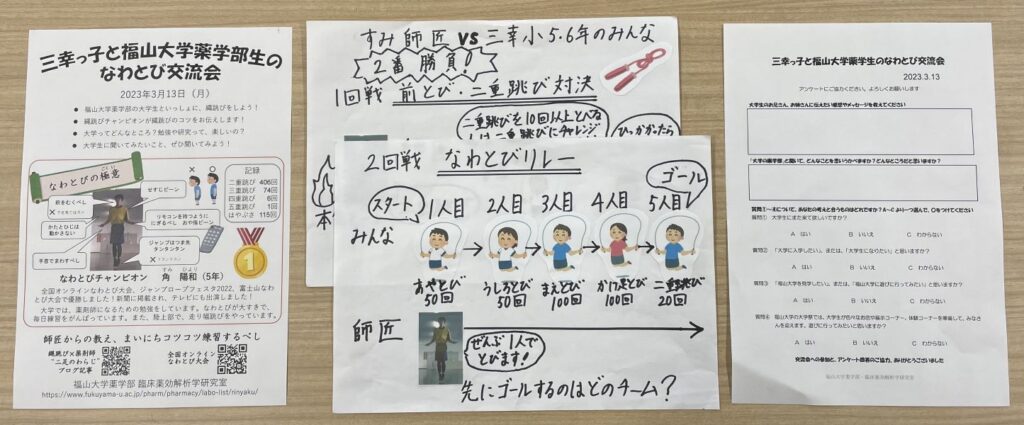 三幸っ子と福山大学薬学部生の
なわとび交流会
2023年3月13日（月）
● 福山大学薬学部の大学生といっしょに、縄跳びをしよう！
● 縄跳びチャンピオンが縄跳びのコツをお伝えします！
● 大学ってどんなところ？勉強や研究って、楽しいの？
● 大学生に聞いてみたいこと、ぜひ聞いてみよう！
なわとびの極意
せすじピーン
× ○
前をむくべし
かたとひじは
動かさない
手首でまわすべし
リモコンを持つように
にぎるべし
ジャンプはつま先
タンタンタン
記録
二重跳び 406回
三重跳び 74回
四重跳び 6回
五重跳び 1回
はやぶさ 115回
1
なわとびチャンピオン
すみ ひより
角 陽和（5年）
全国オンラインなわとび大会、ジャンプロープフェスタ2022、富士山なわ
とび大会で優勝しました！新聞に掲載され、テレビにも出演しました！
大学では、薬剤師になるための勉強をしています。なわとびが大すきで、
毎日練習をがんばっています。また、陸上部で、走り幅跳びをやっています。
師匠からの教え、まいにちコツコツ練習するべし
縄跳び×薬剤師
"二足のわらじ"
ブログ記事
全国オンライン
なわとび大会
福山大学薬学部 臨床薬効解析学研究室
https://www.fukuyama-u.ac.jp/pharm/pharmacy/labo-list/rinyaku/
すみ師匠 VS 三幸小5.6年のみんな
2番勝負！
1回戦 前とび・二重跳び対決
二重跳びを10回以上とべる
二重跳びにチャレンジ
ひっかかったら
2回戦 なわとびリレー
ゴール
スタート
1人目 2人目 3人目 4人目 5人目
みんな
あやとび 50回
うしろとび 50回
まえとび 100回
かけ足とび 100回
二重跳び 20回
師匠
ぜんぶ1人で
とびます！
先にゴールするのはどのチーム？
三幸っ子と福山大学薬学生のなわとび交流会
2023.3.13
アンケートにご協力ください。よろしくお願いします
大学生のお兄さん、お姉さんに伝えたい感想やメッセージを教えてください
「大学の薬学部」と聞いて、どんなことを思いうかべますか？どんなところだと思いますか？
質問① 大学生にまた来て欲しいですか？
A はい B いいえ C わからない
質問② 「大学に入学したい」、または、「大学生になりたい」と思いますか？
A はい B いいえ C わからない
質問③ 「福山大学を見学したい」、または、「福山大学に遊びに行ってみたい」と思いますか？
A はい B いいえ C わからない
A はい B いいえ C わからない
交流会への参加と、アンケート調査のご協力、ありがとうございました
福山大学薬学部・臨床薬効解析学研究室